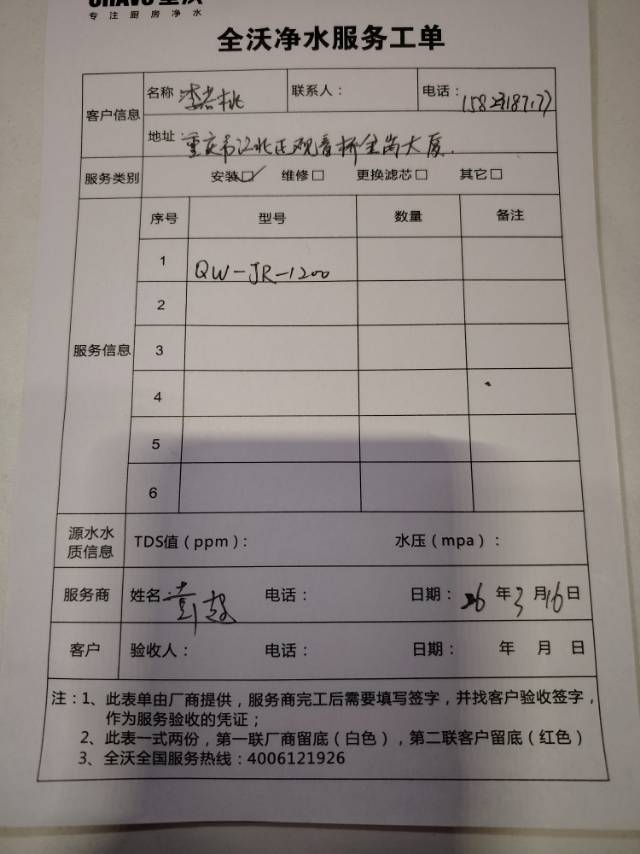 专注厨房净水
全沃净水服务工单
客户信息 名称 李岩桃 联系人： 电话：
地址： 重庆市江北区观音桥金岗大厦
服务类别 安装☑ 维修□ 更换滤芯□ 其它□
服务信息 序号 型号 数量 备注
1 QW-JR-1200
2
3
4
5
6
源水水质信息 TDS值（ppm）： 水压（mpa）：
服务商 姓名： 电话： 日期： 26 年 3 月 16 日
客户 验收人： 电话： 日期： 年 月 日
注：1、此表单由厂商提供，服务商完工后需要填写签字，并找客户验收签字，
作为服务验收的凭证；
2、此表一式两份，第一联厂商留底（白色），第二联客户留底（红色）
3、全沃全国服务热线：4006121926